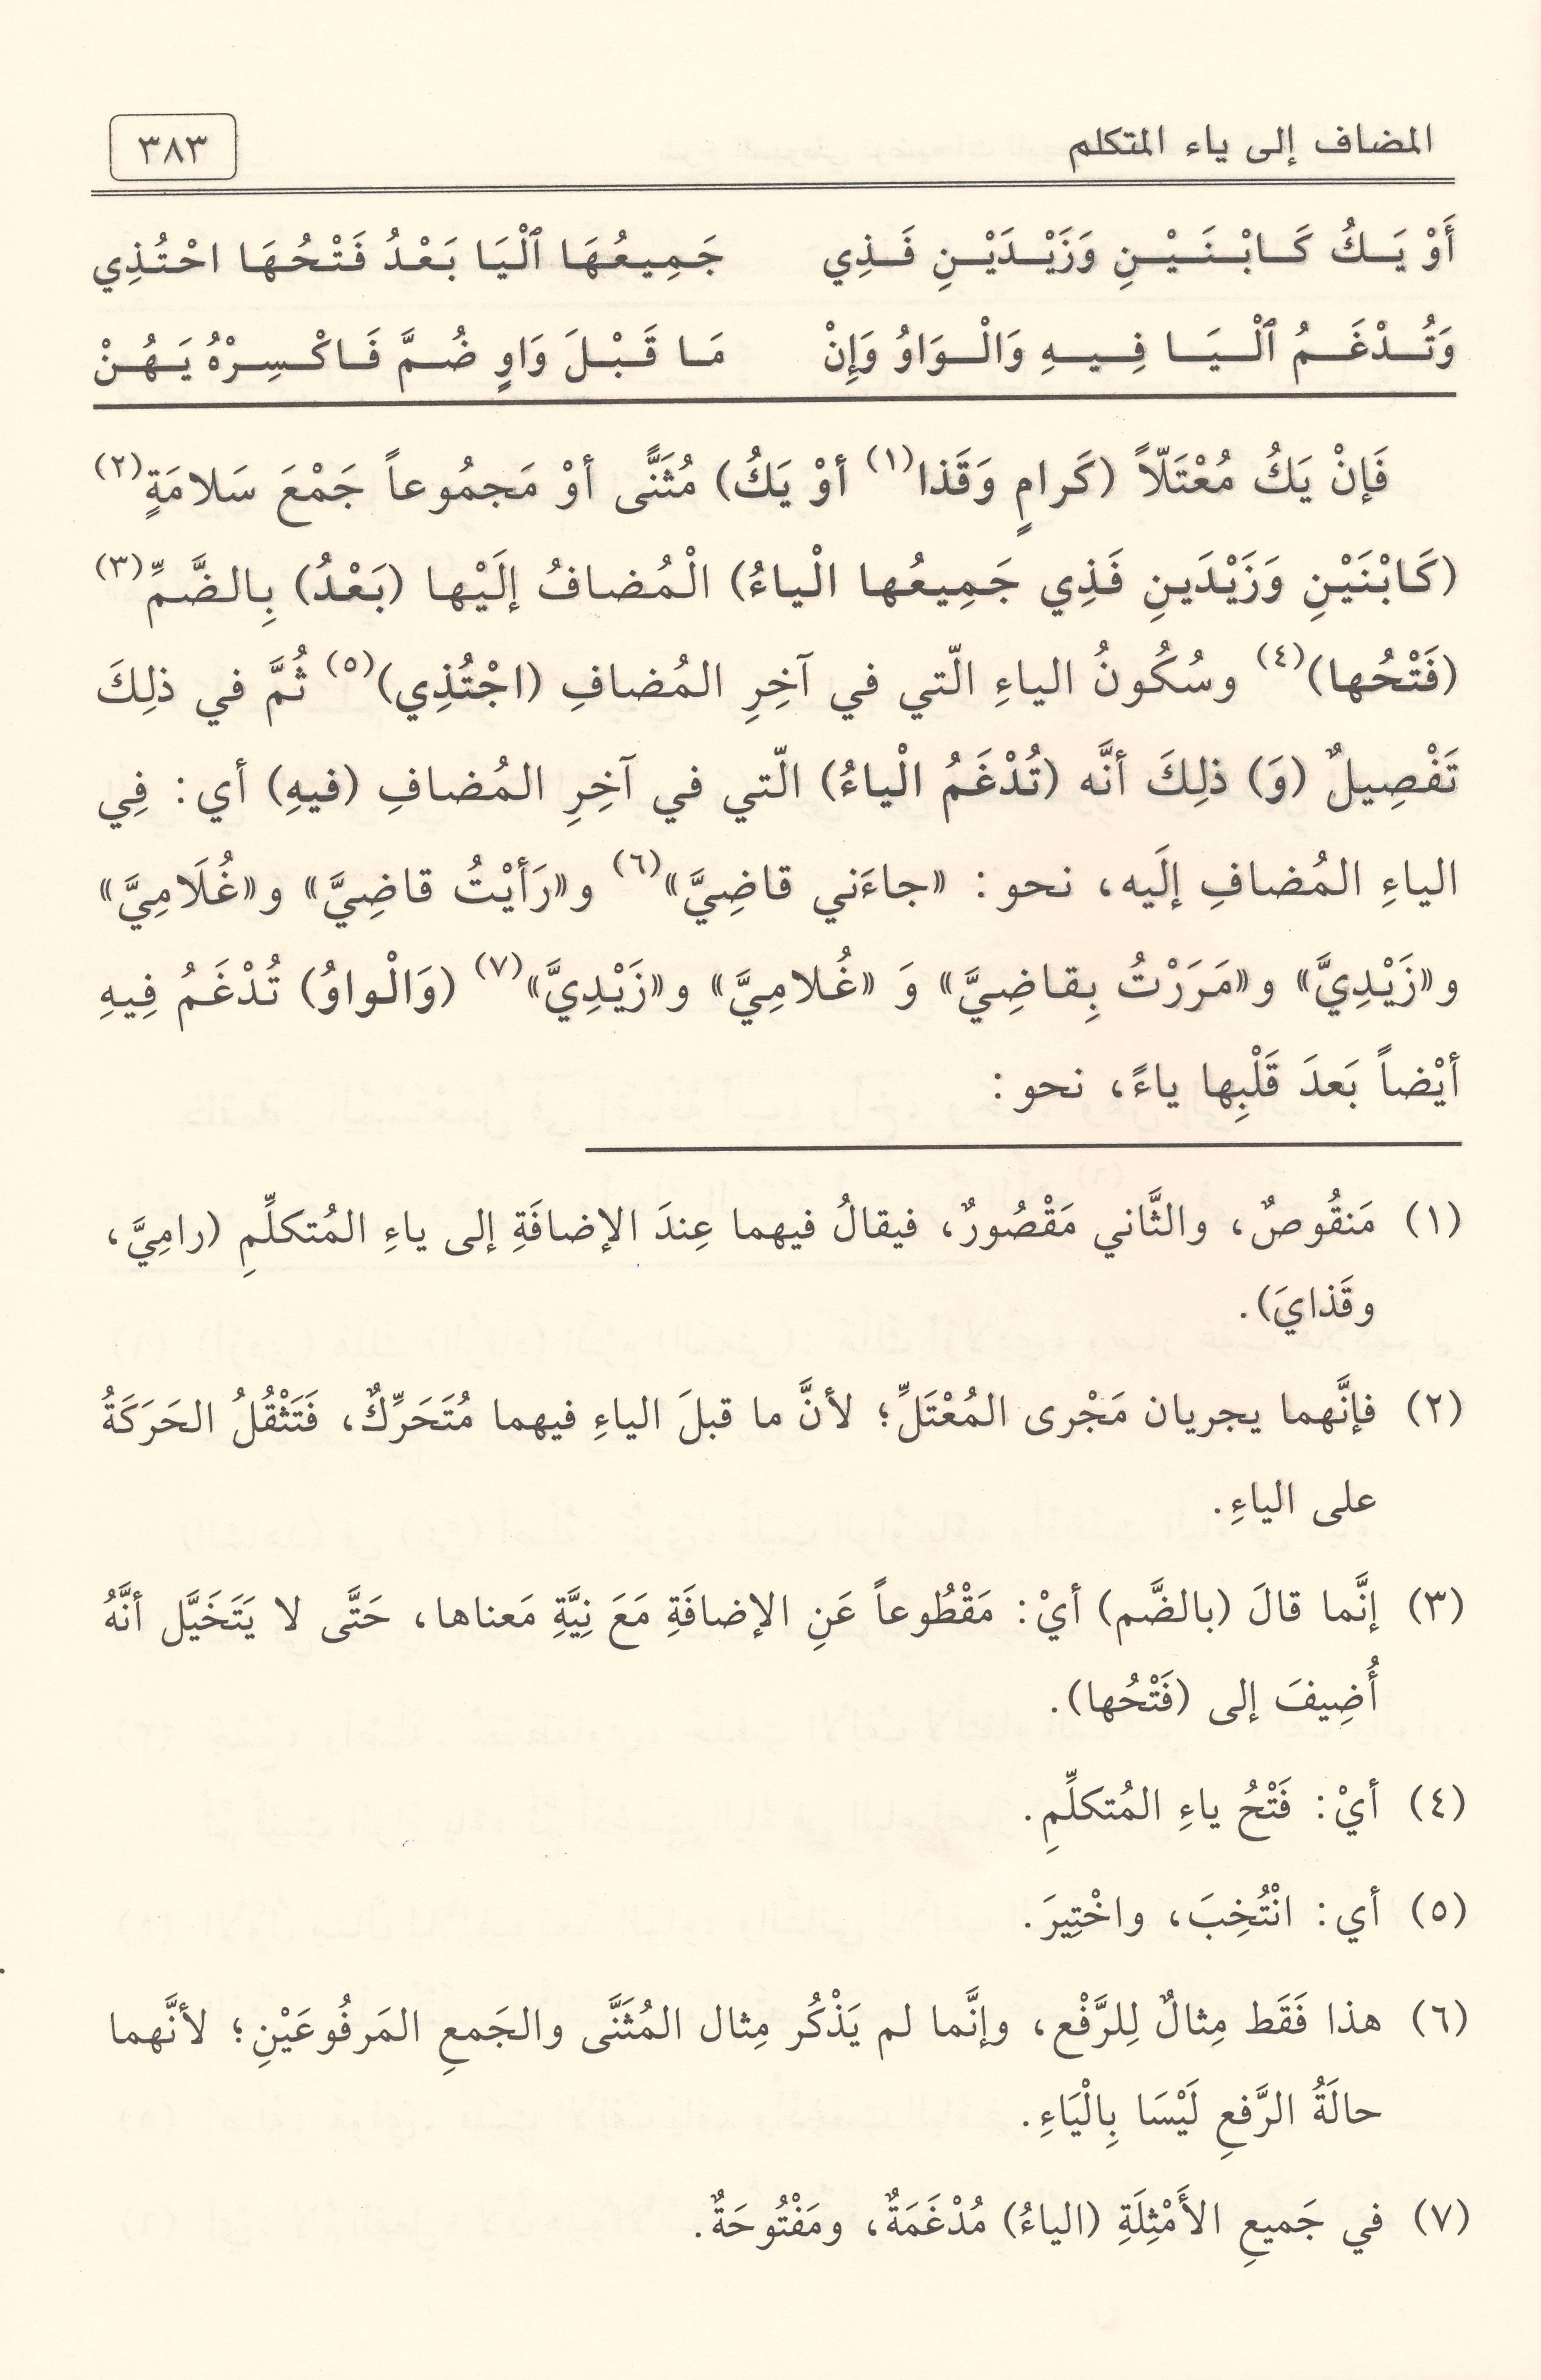 المضاف إلى ياء المتكلم
٣٨٣
أَوْ يَـكُ كَـابْـنَـيْـنِ وَزَيْـدَيْـنِ فَـذِي جَـمِـيعُـهَا ٱلْيَا بَـعْـدُ فَتْـحُـهَا احْـتُـذِي
وَتُـدْغَـمُ ٱلْـيَـا فِـيـهِ وَالْـوَاوُ وَإِنْ مَـا قَـبْـلَ وَاوٍ ضُـمَّ فَـاكْـسِـرْهُ يَـهُـنْ
فَإنْ يَكُ مُعْتَلّاً (كَرامٍ وَقَذا(١) أوْ يَكُ) مُثَنًّى أوْ مَجمُوعاً جَمْعَ سَلامَةٍ(٢)
(كَابْنَيْنِ وَزَيْدَينِ فَذِي جَمِيعُها الْياءُ) الْمُضافُ إلَيْها (بَعْدُ) بِالضَّمِّ(٣)
(فَتْحُها)(٤) وسُكُونُ الياءِ الّتي في آخِرِ المُضافِ (اجْتُذِي)(٥) ثُمَّ في ذلِكَ
تَفْصِيلٌ (وَ) ذلِكَ أنَّه (تُدْغَمُ الْياءُ) الّتي في آخِرِ المُضافِ (فيهِ) أي: فِي
الياءِ المُضافِ إلَيه، نحو: «جاءَني قاضِيَّ»(٦) و«رَأيْتُ قاضِيَّ» و«غُلَامِيَّ»
و«زَيْدِيَّ» و«مَرَرْتُ بِقاضِيَّ» وَ «غُلامِيَّ» و«زَيْدِيَّ»(٧) (وَالْواوُ) تُدْغَمُ فِيهِ
أيْضاً بَعدَ قَلْبِها ياءً، نحو:
(١) مَنقُوصٌ، والثَّاني مَقْصُورٌ، فيقالُ فيهما عِندَ الإضافَةِ إلى ياءِ المُتكلِّمِ (رامِيَّ،
وقَذايَ).
(٢) فإنَّهما يجريان مَجْرى المُعْتَلِّ؛ لأنَّ ما قبلَ الياءِ فيهما مُتَحَرِّكٌ، فَتَثْقُلُ الحَرَكَةُ
على الياءِ.
(٣) إنَّما قالَ (بالضَّم) أيْ: مَقْطُوعاً عَنِ الإضافَةِ مَعَ نِيَّةِ مَعناها، حَتَّى لا يَتَخَيَّل أنَّهُ
أُضِيفَ إلى (فَتْحُها).
(٤) أيْ: فَتْحُ ياءِ المُتكلِّمِ.
(٥) أي: انْتُخِبَ، واخْتِيرَ.
(٦) هذا فَقَط مِثالٌ لِلرَّفْع، وإنَّما لم يَذْكُر مِثال المُثَنَّى والجَمعِ المَرفُوعَيْنِ؛ لأنَّهما
حالَةُ الرَّفعِ لَيْسَا بِالْيَاءِ.
(٧) في جَميعِ الأَمْثِلَةِ (الياءُ) مُدْغَمَةٌ، ومَفْتُوحَةٌ.